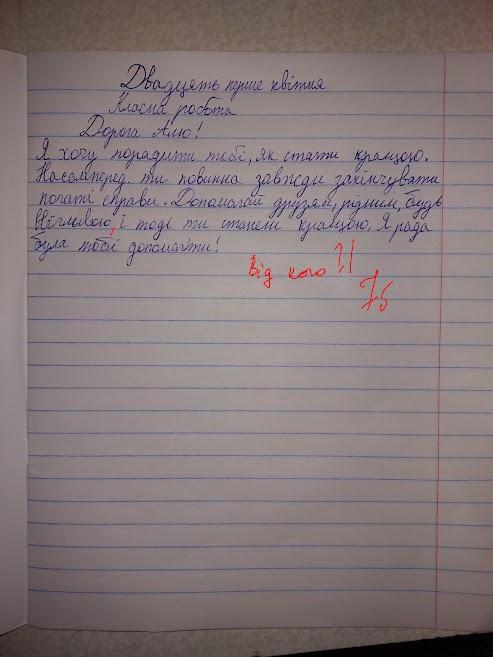 Двадцять перше квітня
Класна робота
Дорога Алю!
Я хочу порадити тобі, як стати кращою.
Насамперед ти повинна завжди закінчувати
початі справи. Допомагай друзям, рідним, будь
ввічливою, і тоді ти станеш кращою. Я рада
була тобі допомагти!
Від кого?!